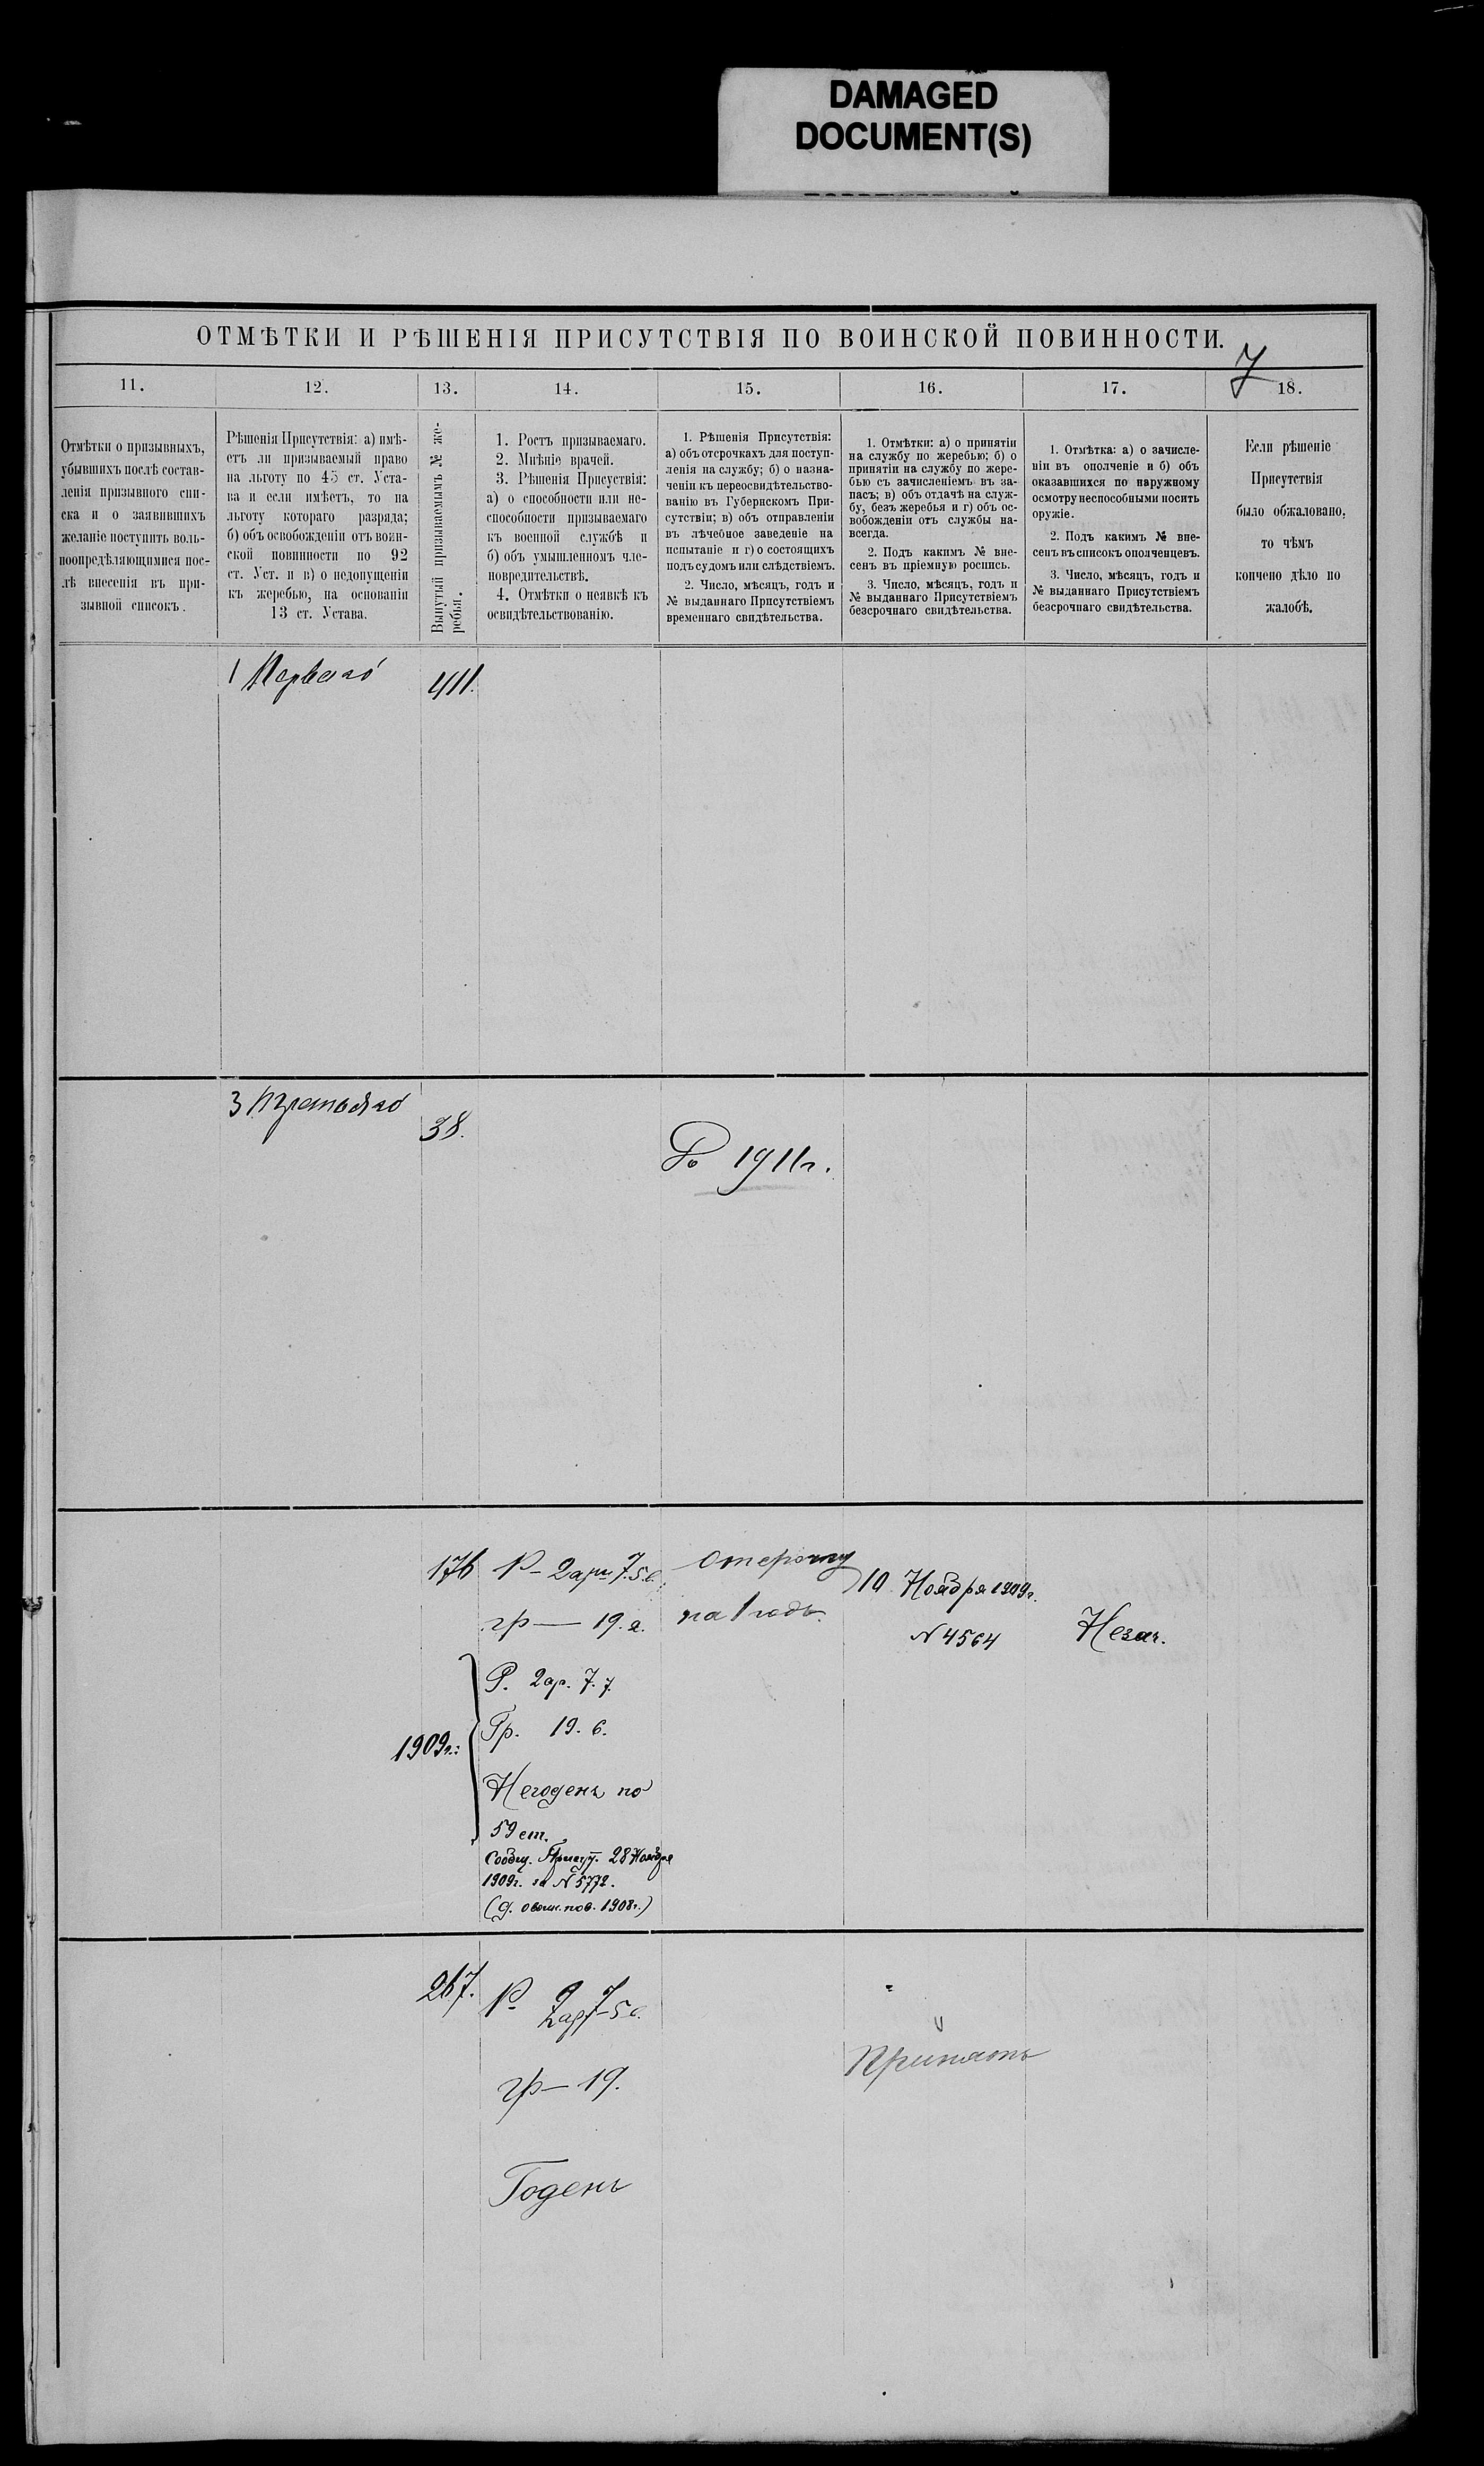 DAMAGED
DOCUMENT(S)
ОТМѢТКИ И РѢШЕНІЯ ПРИСУТСТВІЯ ПО ВОИНСКОЙ ПОВИННОСТИ.
7
11.
12.
13.
14.
15.
16.
17.
18.
Отмѣтки о призывныхъ,
убывшихъ послѣ состав-
ленія призывного спи-
ска и о заявившихъ
желаніе поступить воль-
ноопредѣляющимися пос-
лѣ внесенія въ при-
зывной списокъ.
Рѣшенія Присутствія: а) имѣ-
етъ ли призываемый право
на льготу по 45 ст. Уста-
ва и если имѣетъ, то на
льготу котораго разряда;
б) объ освобожденіи отъ воин-
ской повинности по 92
ст. Уст. и в) о недопущеніи
къ жеребью, на основаніи
13 ст. Устава.
Вынутый призываемымъ № же-
ребья.
1. Ростъ призываемаго.
2. Мнѣніе врачей.
3. Рѣшенія Присуствія:
а) о способности или не-
способности призываемаго
къ военной службѣ и
б) объ умышленномъ чле-
новредительствѣ.
4. Отмѣтки о неявкѣ къ
освидѣтельствованію.
1. Рѣшенія Присутствія:
а) объ отсрочкахъ для поступ-
ленія на службу; б) о назна-
ченіи къ переосвидѣтельство-
ванію въ Губернскомъ При-
сутствіи; в) объ отправленіи
въ лѣчебное заведеніе на
испытаніе и г) о состоящихъ
подъ судомъ или слѣдствіемъ.
2. Число, мѣсяцъ, годъ и
№ выданнаго Присутствіемъ
временнаго свидѣтельства.
1. Отмѣтки: а) о принятіи
на службу по жеребью; б) о
принятіи на службу по жере-
бью съ зачисленіемъ въ за-
пасъ; в) объ отдачѣ на служ-
бу, безъ жеребья и г) объ ос-
вобожденіи отъ службы на-
всегда.
2. Подъ какимъ № вне-
сенъ въ пріемную роспись.
3. Число, мѣсяцъ, годъ и
№ выданнаго Присутствіемъ
безсрочнаго свидѣтельства.
1. Отмѣтка: а) о зачисле-
ніи въ ополченіе и б) объ
оказавшихся по наружному
осмотру неспособными носить
оружіе.
2. Подъ какимъ № вне-
сенъ въ списокъ ополченцевъ.
3. Число, мѣсяцъ, годъ и
№ выданнаго Присутствіемъ
безсрочнаго свидѣтельства.
Если рѣшеніе
Присутствія
было обжаловано,
то чѣмъ
кончено дѣло по
жалобѣ.
1 Перваго
411.
3 Третьяго
38.
До 1911г.
176
Р- 2арш 7.5.в.
гр — 19.2.
Отсрочку
на 1 годъ.
10 Ноября 1909г.
N 4564
Незач.
1909г.:
Р. 2ар. 7. 7.
Гр. 19. 6.
Негоденъ по
59 ст.
Сообщ. Присут. 28 Ноября
1909г. за N 5772.
(д. о воин. пов. 1908г.)
267.
Р- 2ар 7-5в.
гр — 19.
Годенъ
Принятъ